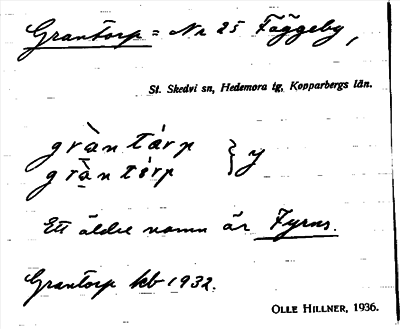 Grantorp = Nr 25 Fäggeby,
St. Skedvi sn, Hedemora tg, Kopparbergs län.
grà̤n tárp } y
grà̤n tórp
Ett äldre namn är Fyrns.
Grantorp kb 1932.
OLLE HILLNER, 1936.